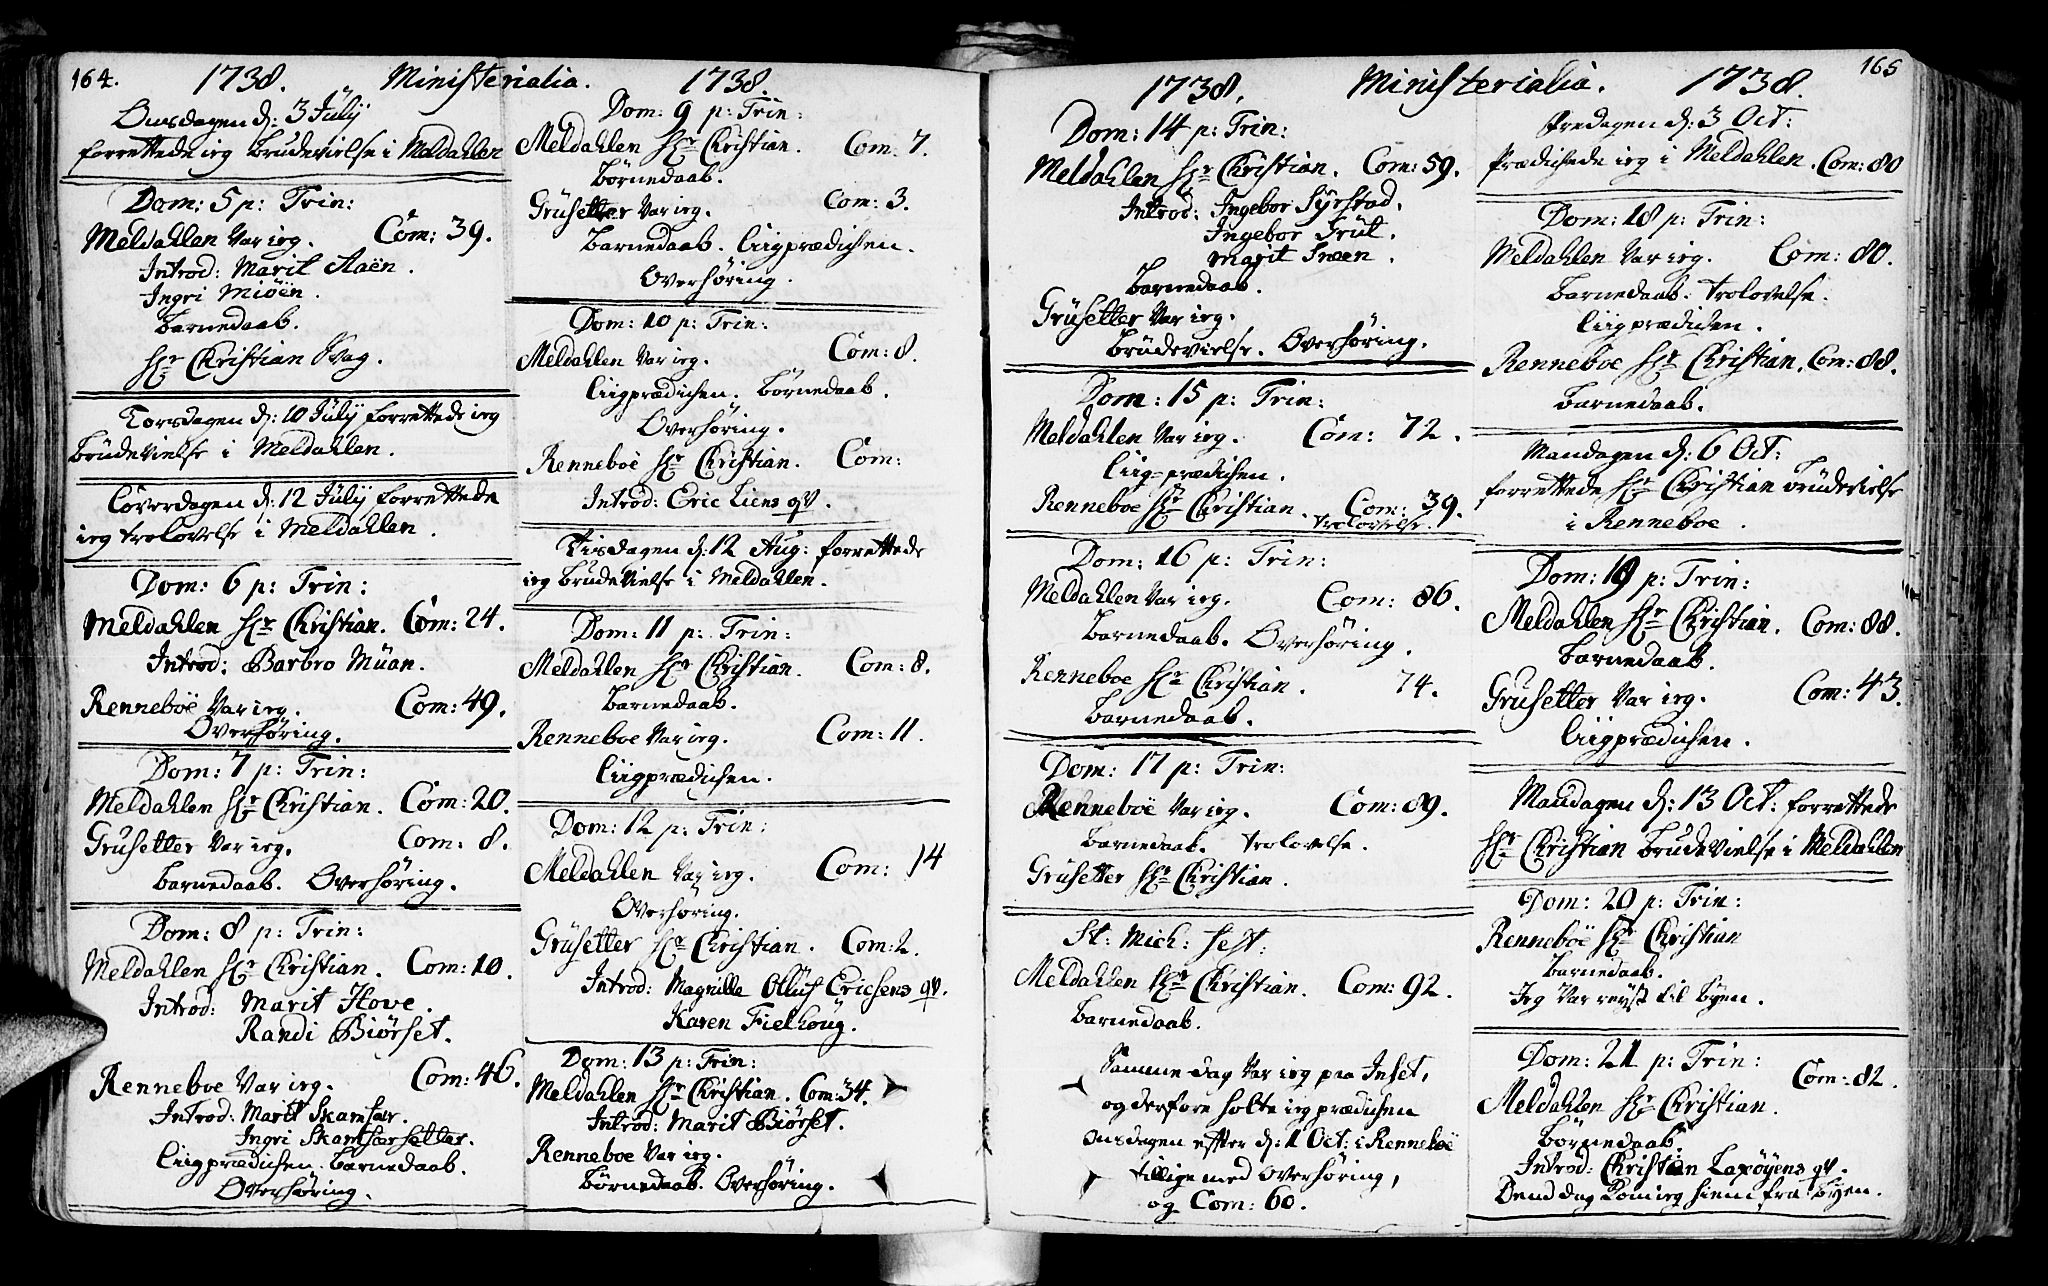 164. 1738. Ministerialia. 1738.
Onsdagen d: 3 Julij
forrettede ieg Brudevielse i Meldahlen
Dom: 5 p: Trin:
Meldahlen Var ieg. Com: 39.
Introd: Marit Aaen.
Ingri Miöen.
Barnedaab.
Hr Christian Svag.
Torsdagen d: 10 Julij forrettede ieg
Brudevielse i Meldahlen.
Löverdagen d: 12 Julij forrettede
ieg trolovelse i Meldahlen.
Dom: 6 p: Trin:
Meldahlen Hr Christian. Com: 24.
Introd: Barbro Muan.
Renneboe Var ieg. Com: 49.
Overhöring.
Dom: 7 p: Trin:
Meldahlen Hr Christian. Com: 20.
Grusetter Var ieg. Com: 8.
Barnedaab. Overhöring.
Dom: 8 p: Trin:
Meldahlen Hr Christian. Com: 10.
Introd: Marit Hove.
Randi Biörset.
Renneboe Var ieg. Com: 46.
Introd: Marit Skamfær.
Ingri Skamfærsetter.
Liigprædichen. Barnedaab.
Overhöring.
Dom: 9 p: Trin:
Meldahlen Hr Christian. Com: 7.
Börnedaab.
Grusetter Var ieg. Com: 3.
Barnedaab. Liigprædichen.
Overhöring.
Dom: 10 p: Trin:
Meldahlen Var ieg. Com: 8.
Liigprædichen. Börnedaab.
Overhöring.
Renneboe Hr Christian. Com:
Introd: Eric Liens qv.
Tisdagen d: 12 Aug: forrettede
ieg Brudevielse i Meldahlen.
Dom: 11 p: Trin:
Meldahlen Hr Christian. Com: 8.
Barnedaab.
Renneboe Var ieg. Com: 11.
Liigprædichen.
Dom: 12 p: Trin:
Meldahlen Var ieg. Com: 14
Overhöring.
Grusetter Hr Christian. Com: 2.
Introd: Magnille Olluf Ericsens qv.
Karen Fielhoug.
Dom: 13 p: Trin:
Meldahlen Hr Christian. Com: 34.
Introd: Marit Biörset.
Renneboe Var ieg.
Börnedaab. Overhöring.
1738. Ministerialia. 1738. 165
Dom: 14 p: Trin:
Meldahlen Hr Christian. Com: 59.
Introd: Ingebor Syrstad.
Ingebor Grut.
Marit Snoen.
Barnedaab.
Grusetter Var ieg.
Brudevielse. Overhöring.
Dom: 15 p: Trin:
Meldahlen Var ieg. Com: 72.
Liig-prædichen.
Renneboe Hr Christian. Com: 39.
Trolovelse.
Dom: 16 p: Trin:
Meldahlen Var ieg. Com: 86.
Barnedaab. Overhöring.
Renneboe Hr Christian. 74.
Barnedaab.
Dom: 17 p: Trin:
Renneboe Var ieg. Com: 89.
Barnedaab. Trolovelse.
Grusetter Hr Christian.
St: Mich: Fest:
Meldahlen Hr Christian. Com: 92.
Barnedaab.
Samme dag Var ieg paa Inset,
og derfore holte ieg prædichen
Onsdagen effter d: 1 Oct: i Renneboe
tillige med Overhöring,
og Com: 60.
Fredagen d: 3 Oct:
Prædichede ieg i Meldahlen. Com: 80
Dom: 18 p: Trin:
Meldahlen Var ieg. Com: 80.
Barnedaab. Trolovelse.
Liigprædichen.
Renneboe Hr Christian. Com: 88.
Barnedaab.
Mandagen d: 6 Oct:
forrettede Hr Christian Brudevielse
i Renneboe.
Dom: 19 p: Trin:
Meldahlen Hr Christian. Com: 88.
Barnedaab.
Grusetter Var ieg. Com: 43.
Liigprædichen.
Mandagen d: 13 Oct: forrettede
Hr Christian Brudevielse i Meldahlen
Dom: 20 p: Trin:
Renneboe Hr Christian
Barnedaab.
Jeg Var reyst til Byen.
Dom: 21 p: Trin:
Com: 82.
Meldahlen Hr Christian.
Börnedaab
Introd: Christian Laxöyens qv.
Dend dag kom ieg hiem fra Byen.